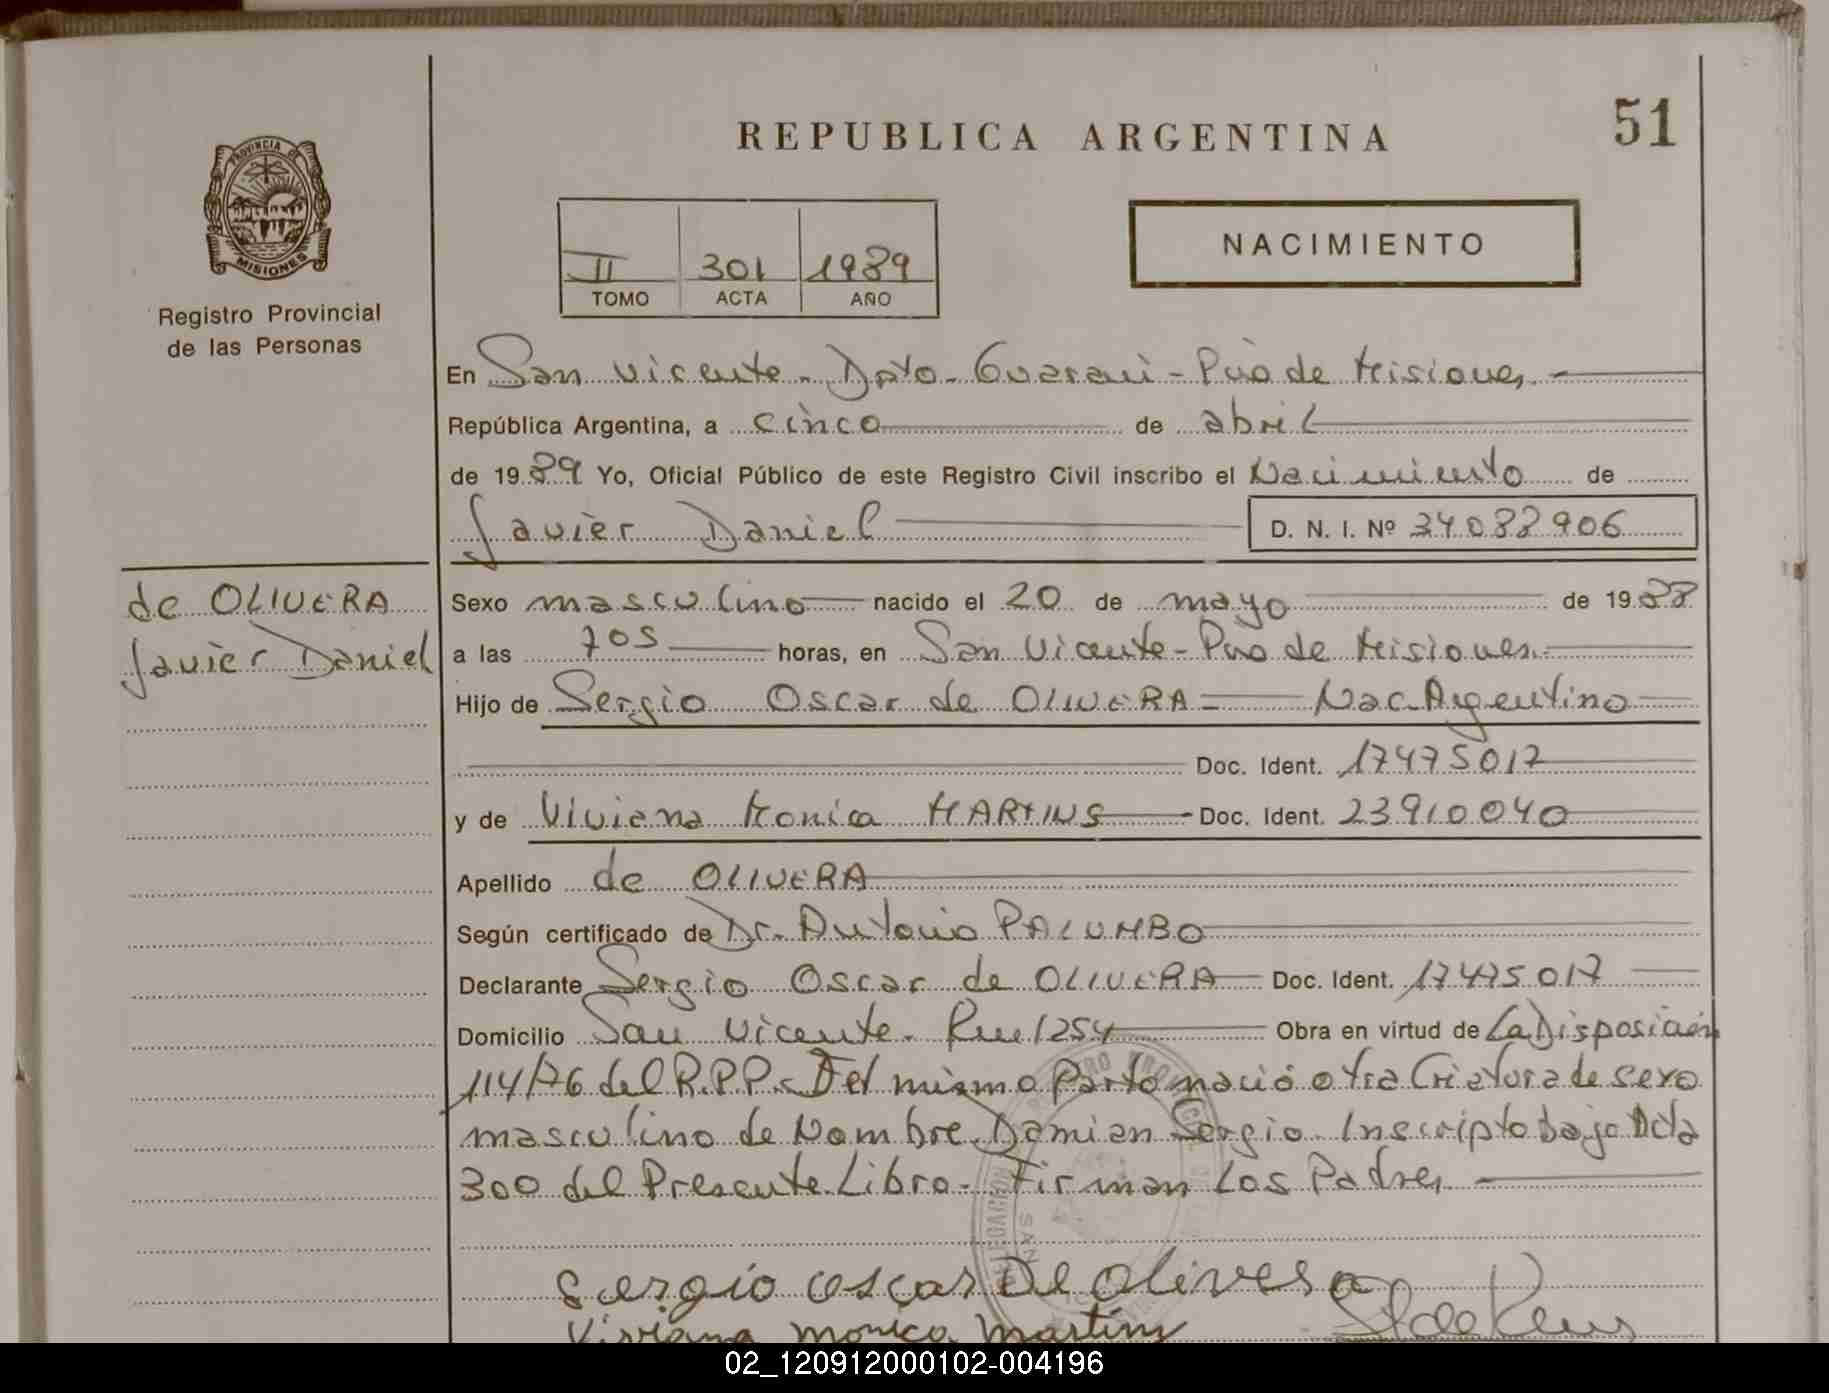 REPUBLICA ARGENTINA
51
PROVINCIA DE
MISIONES
Registro Provincial
de las Personas
II 301 1989
TOMO ACTA AÑO
NACIMIENTO
En San Vicente - Dpto - Guarani - Pcia de Misiones -
República Argentina, a cinco de abril
de 1989 Yo, Oficial Público de este Registro Civil inscribo el Nacimiento de
Javier Daniel D. N. I. Nº 34088906
de OLIVERA
Javier Daniel
Sexo masculino nacido el 20 de mayo de 1988
a las 705 horas, en San Vicente - Pcia de Misiones.
Hijo de Sergio Oscar de OLIVERA - Nac. Argentino
Doc. Ident. 17475017
y de Viviana Monica MARTINS - Doc. Ident. 23910040
Apellido de OLIVERA
Según certificado de Dr. Antonio PALUMBO
Declarante Sergio Oscar de OLIVERA Doc. Ident. 17475017
Domicilio San Vicente. 1254 Obra en virtud de La Disposición
114/76 del R.P.P. Del mismo Parto nació otra Criatura de sexo
masculino de Nombre Damian Sergio. Inscripto bajo Acta
300 del Presente Libro - Firman Los Padres
Sergio oscar De olivera
Viviana monica martins
02_120912000102-004196